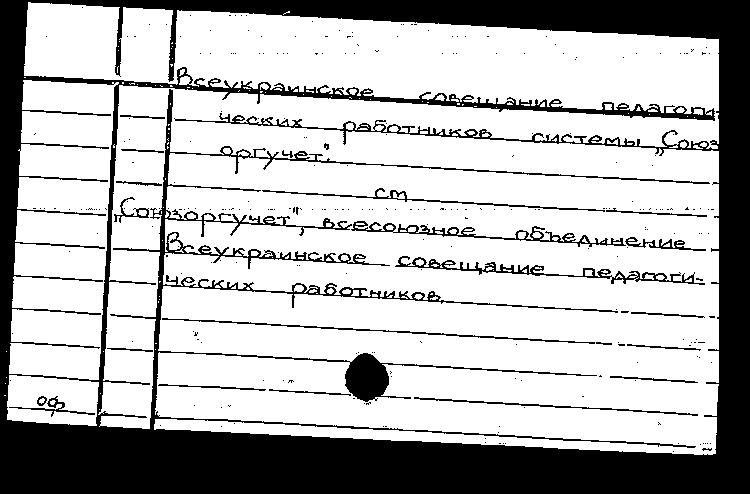 Всеукраинское совещание педагоги-
ческих работников системы „Союз
оргучет".
см
„Союзоргучет", всесоюзное объединение
Всеукраинское совещание педагоги-
ческих работников.
оф